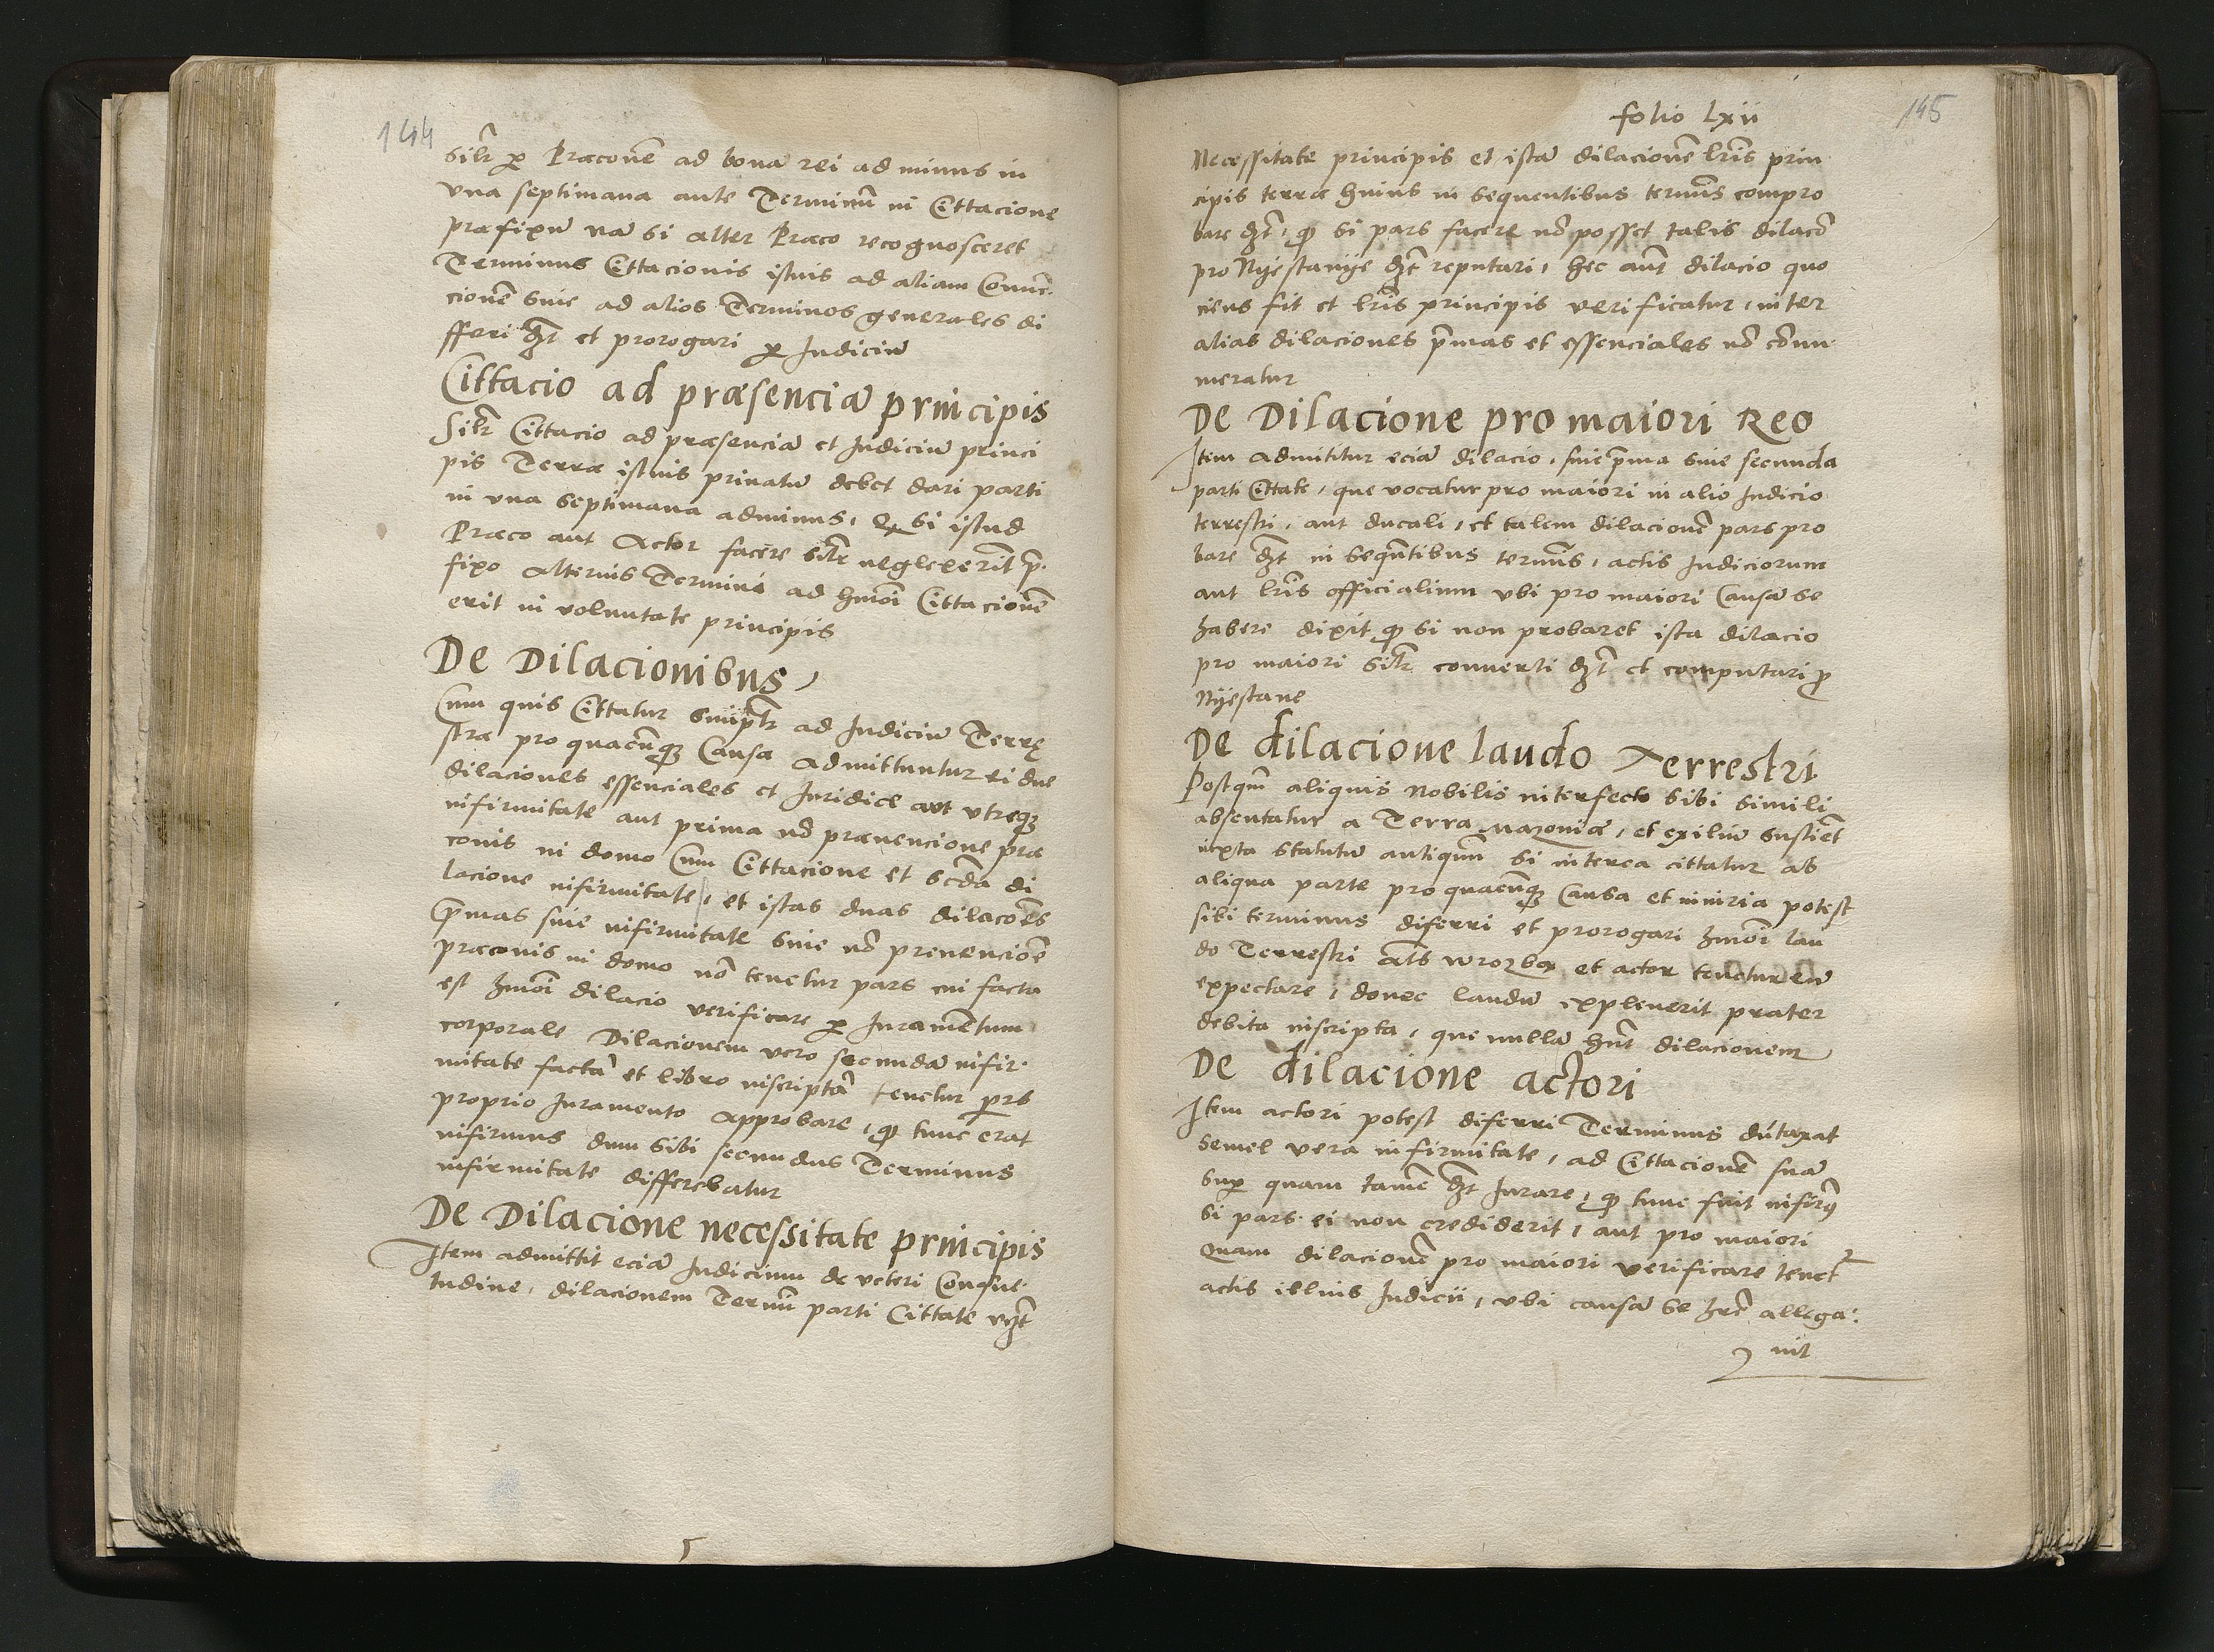 144
Silr̃ p Præconẽ ad bona rei ad minus in
vna septimana ante Terminũ in Cittacione
præfixũ nã si alter Præco recognosceret
Terminus Cittacionis istius ad aliam Conuẽ-
cionẽ siue ad alios Terminos generales di
fferi dz̃t et prorogari p Iudiciũ
Cittacio ad præsenciã principis
Silr̃ Cittacio ad præsenciã et Iudiciũ princi
pis Terræ istius priuatũ debet dari parti
in vna septimana adminus, Qz si istud
Præco aut Actor facere silr̃ neglexerit p̃-
fixo alterius Termini ad hm̃oi Cittacionẽ
erit in voluntate principis
De Dilacionibus,
Cum quis Cittatur simplr̃ ad Iudiciũ Terrę
stræ pro quacũqz Causa admittuntur ei due
dilaciones essenciales et Iuridice aut vtreqz
infirmitate aut prima nõ præuencione præ
conis in domo Cum Cittacione et scd̃a di
lacione infirmitate, et istas duas dilacões
p̃mas siue infirmitate siue nõ preuencionẽ
præconis in domo nõ tenetur pars cui facta
est hm̃oi dilacio verificare p Iuramẽtum
corporale Dilacionem vero secundã infir-
mitate factã et libro inscriptã tenetur pars
proprio Iuramento approbare, qp tunc erat
infirmus dum sibi secundus Terminus
infirmitate differebatur
De Dilacione necessitate principis
Item admittit eciã Iudicium de veteri Consue-
tudine, dilacionem Terminũ parti Cittate vz̃t
folio lxii
145
Necessitate principis et istã dilacionẽ lr̃is prin
cipis terræ huius in sequentibus terminis compro
bare dz̃t, qp si pars facere nõ posset talis dilacõ
pro Nyestanije dz̃t reputari, hec aũt dilacio quo
ciens fit et lr̃is principis verificatur, inter
alias dilaciones p̃mas et essenciales nõ cõnu-
meratur
De Dilacione pro maiori Reo
Item admititur eciã dilacio, siue p̃ma siue secunda
parti Cittate, que vocatur pro maiori in alio Iudicio
terrestri, aut ducali, et talem dilacionẽ pars pro
bare dz̃t in sequẽtibus terminis, actis Iudiciorum
aut lr̃is officialium vbi pro maiori Causã se
habere dixit qp si non probaret ista dilacio
pro maiori silr̃ conuerti dz̃t et computari p
Nyestane
De dilacione laudo Terrestri
Postqm̃ aliquis Nobilis interfecto sibi simili
absentatur a Terra Mazoniæ, et exiliũ sustiet
iuxta statutũ antiquũ si interea cittatur ab
aliqua parte pro quacũqz Causa et iniuria potest
sibi terminus diferri et prorogari hm̃oi lau
do Terrestri als̃ wrozba, et actor tenetur eũ
expectare, donec laudũ expleuerit præter
debita inscripta, que nullã hñt dilacionem
De dilacione actori
Item actori potest diferri Terminus dũtaxat
semel vera infirmitate, ad Cittacionẽ suã
sup quam tamẽ dz̃t Iurare, qp tunc fuit infirmꝰ
si pars ei non crediderit, aut pro maiori
Quam dilacionẽ pro maiori verificare tenet̃
actis illius Iudicii, vbi causã se hr̃e allega-
uit